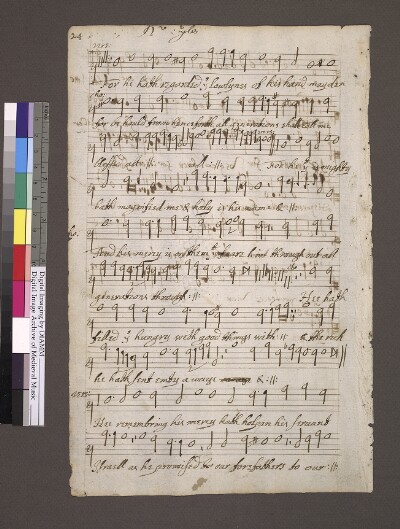 24
vers
For he hath regarded yᵉ lowlyness of his hand mayden
for behould from henceforth all generations shall call me
blessed :||: call :||: For he yᵗ is mighty
hath magnified me & holy is his name & :||:
And his mercy is on them yᵗ feare him throughout all
generations through :||: Hee hath
filled yᵉ hungry with good things with :|| & the rich
he hath sent emty awaye & :||:
vers
Hee remembring his mercy hath holpen his servant
Israell as he promised to our forefathers to our :||:
Digital Imaging by DIAMM
Digital Image Archive of Medieval Music